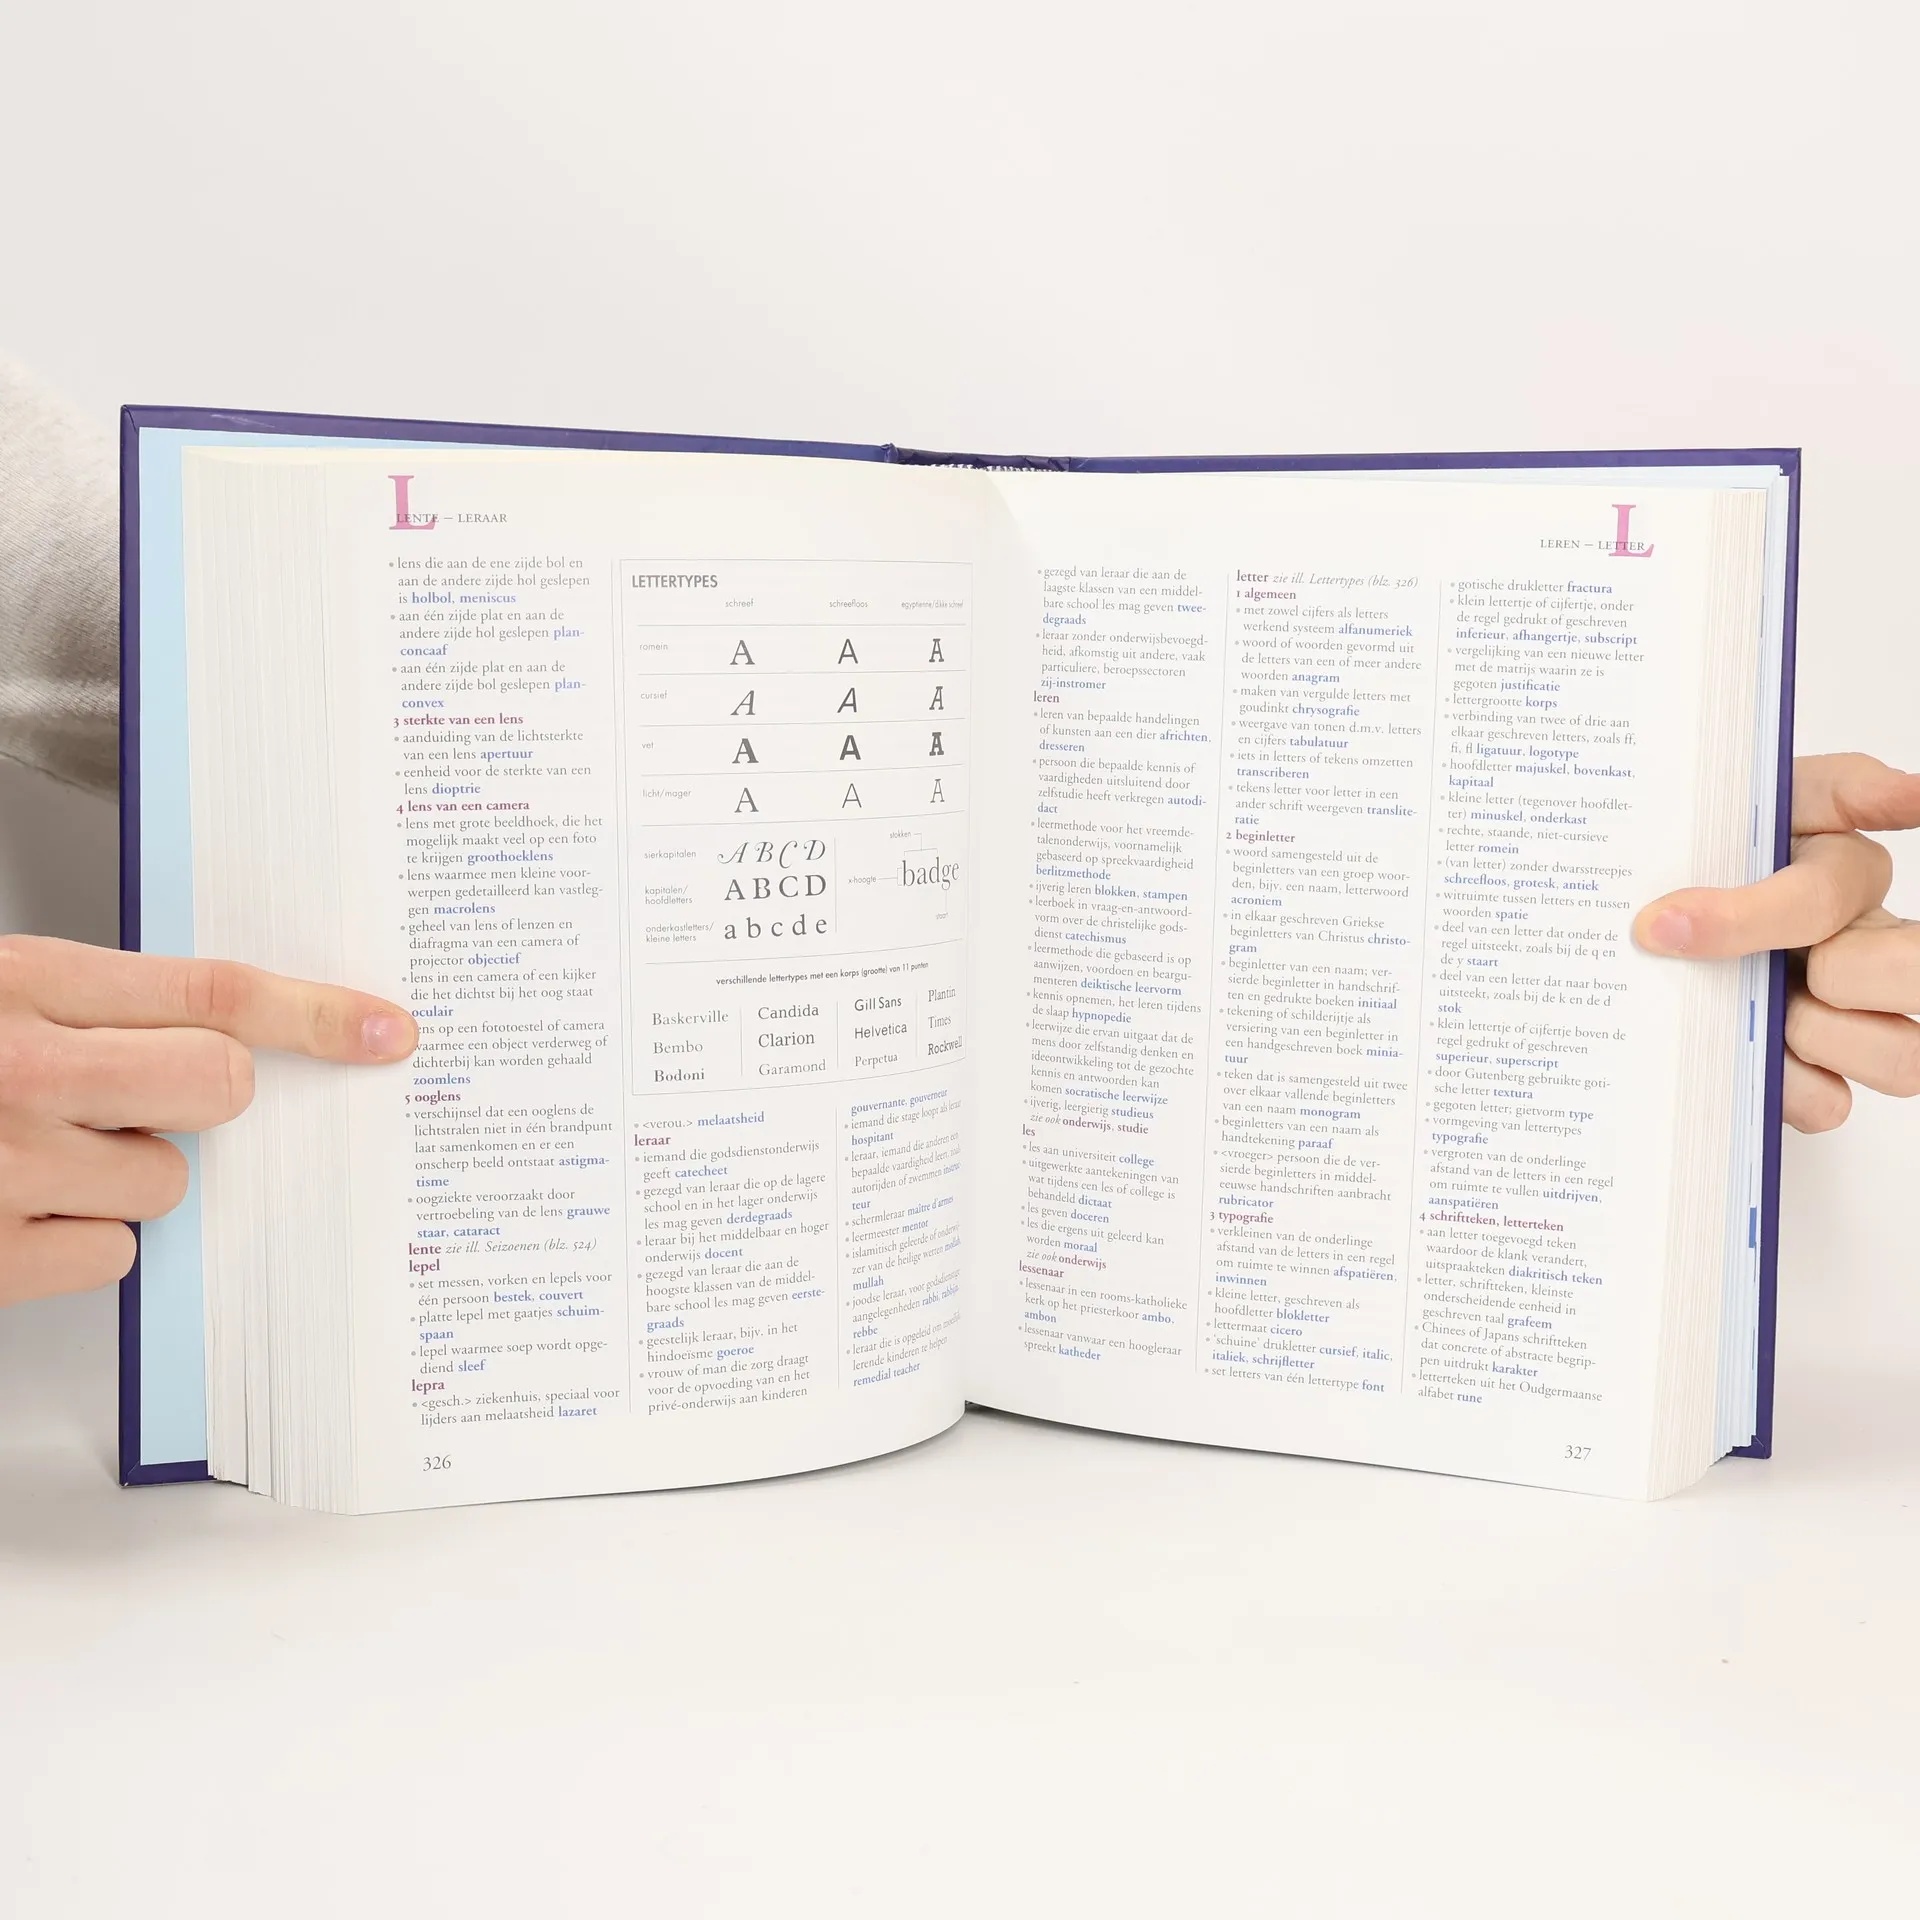 L
LENTE – LERAAR
• lens die aan de ene zijde bol en
aan de andere zijde hol geslepen
is holbol, meniscus
• aan één zijde plat en aan de
andere zijde hol geslepen plan-
concaaf
• aan één zijde plat en aan de
andere zijde bol geslepen plan-
convex
3 sterkte van een lens
• aanduiding van de lichtsterkte
van een lens apertuur
• eenheid voor de sterkte van een
lens dioptrie
4 lens van een camera
• lens met grote beeldhoek, die het
mogelijk maakt veel op een foto
te krijgen groothoeklens
• lens waarmee men kleine voor-
werpen gedetailleerd kan vastleg-
gen macrolens
• geheel van lens of lenzen en
diafragma van een camera of
projector objectief
• lens in een camera of een kijker
die het dichtst bij het oog staat
oculair
op een fototoestel of camera
waarmee een object verderweg of
dichterbij kan worden gehaald
zoomlens
5 ooglens
• verschijnsel dat een ooglens de
lichtstralen niet in één brandpunt
laat samenkomen en er een
onscherp beeld ontstaat astigma-
tisme
• oogziekte veroorzaakt door
vertroebeling van de lens grauwe
staar, cataract
lente zie ill. Seizoenen (blz. 524)
lepel
• set messen, vorken en lepels voor
één persoon bestek, couvert
• platte lepel met gaatjes schuim-
spaan
• lepel waarmee soep wordt opge-
diend sleef
lepra
• <gesch.> ziekenhuis, speciaal voor
lijders aan melaatsheid lazaret
LETTERTYPES
schreef schreefloos egyptienne/dikke schreef
romein A A A
cursief A A A
vet A A A
licht/mager A A A
sierkapitalen A B C D
kapitalen/
hoofdletters A B C D
onderkastletters/
kleine letters a b c d e
stokken
x-hoogte badge
staart
verschillende lettertypes met een korps (grootte) van 11 punten
Baskerville Candida Gill Sans Plantin
Bembo Clarion Helvetica Times
Bodoni Garamond Perpetua Rockwell
• <verou.> melaatsheid
leraar
• iemand die godsdienstonderwijs
geeft catecheet
• gezegd van leraar die op de lagere
school en in het lager onderwijs
les mag geven derdegraads
• leraar bij het middelbaar en hoger
onderwijs docent
• gezegd van leraar die aan de
hoogste klassen van de middel-
bare school les mag geven eerste-
graads
• geestelijk leraar, bijv. in het
hindoeïsme goeroe
• vrouw of man die zorg draagt
voor de opvoeding van en het
privé-onderwijs aan kinderen
gouvernante, gouverneur
• iemand die stage loopt als leraar
hospitant
• leraar, iemand die anderen een
bepaalde vaardigheid leert, zoals
autorijden of zwemmen instruc-
teur
• schermleraar maître d'armes
• leermeester mentor
• islamitisch geleerde of onderwij-
zer van de heilige wetten mollah,
mullah
• joodse leraar, voor godsdienstige
aangelegenheden rabbi, rabbijn,
rebbe
• leraar die is opgeleid om moeilijk
lerende kinderen te helpen
remedial teacher
326
L
LEREN – LETTER
• gezegd van leraar die aan de
laagste klassen van een middel-
bare school les mag geven twee-
degraads
• leraar zonder onderwijsbevoegd-
heid, afkomstig uit andere, vaak
particuliere, beroepssectoren
zij-instromer
leren
• leren van bepaalde handelingen
of kunsten aan een dier africhten,
dresseren
• persoon die bepaalde kennis of
vaardigheden uitsluitend door
zelfstudie heeft verkregen autodi-
dact
• leermethode voor het vreemde-
talenonderwijs, voornamelijk
gebaseerd op spreekvaardigheid
berlitzmethode
• ijverig leren blokken, stampen
• leerboek in vraag-en-antwoord-
vorm over de christelijke gods-
dienst catechismus
• leermethode die gebaseerd is op
aanwijzen, voordoen en beargu-
menteren deiktische leervorm
• kennis opnemen, het leren tijdens
de slaap hypnopedie
• leerwijze die ervan uitgaat dat de
mens door zelfstandig denken en
ideeontwikkeling tot de gezochte
kennis en antwoorden kan
komen socratische leerwijze
• ijverig, leergierig studieus
zie ook onderwijs, studie
les
• les aan universiteit college
• uitgewerkte aantekeningen van
wat tijdens een les of college is
behandeld dictaat
• les geven doceren
• les die ergens uit geleerd kan
worden moraal
zie ook onderwijs
lessenaar
• lessenaar in een rooms-katholieke
kerk op het priesterkoor ambo,
ambon
• lessenaar vanwaar een hoogleraar
spreekt katheder
letter zie ill. Lettertypes (blz. 326)
1 algemeen
• met zowel cijfers als letters
werkend systeem alfanumeriek
• woord of woorden gevormd uit
de letters van een of meer andere
woorden anagram
• maken van vergulde letters met
goudinkt chrysografie
• weergave van tonen d.m.v. letters
en cijfers tabulatuur
• iets in letters of tekens omzetten
transcriberen
• tekens letter voor letter in een
ander schrift weergeven translite-
ratie
2 beginletter
• woord samengesteld uit de
beginletters van een groep woor-
den, bijv. een naam, letterwoord
acroniem
• in elkaar geschreven Griekse
beginletters van Christus christo-
gram
• beginletter van een naam; ver-
sierde beginletter in handschrif-
ten en gedrukte boeken initiaal
• tekening of schilderijtje als
versiering van een beginletter in
een handgeschreven boek minia-
tuur
• teken dat is samengesteld uit twee
over elkaar vallende beginletters
van een naam monogram
• beginletters van een naam als
handtekening paraaf
• <vroeger> persoon die de ver-
sierde beginletters in middel-
eeuwse handschriften aanbracht
rubricator
3 typografie
• verkleinen van de onderlinge
afstand van de letters in een regel
om ruimte te winnen afspatiëren,
inwinnen
• kleine letter, geschreven als
hoofdletter blokletter
• lettermaat cicero
• 'schuine' drukletter cursief, italic,
italiek, schrijfletter
• set letters van één lettertype font
• gotische drukletter fractura
• klein lettertje of cijfertje, onder
de regel gedrukt of geschreven
inferieur, afhangertje, subscript
• vergelijking van een nieuwe letter
met de matrijs waarin ze is
gegoten justificatie
• lettergrootte korps
• verbinding van twee of drie aan
elkaar geschreven letters, zoals ff,
fi, fl ligatuur, logotype
• hoofdletter majuskel, bovenkast,
kapitaal
• kleine letter (tegenover hoofdlet-
ter) minuskel, onderkast
• rechte, staande, niet-cursieve
letter romein
• (van letter) zonder dwarsstreepjes
schreefloos, grotesk, antiek
• witruimte tussen letters en tussen
woorden spatie
• deel van een letter dat onder de
regel uitsteekt, zoals bij de q en
de y staart
• deel van een letter dat naar boven
uitsteekt, zoals bij de k en de d
stok
• klein lettertje of cijfertje boven de
regel gedrukt of geschreven
superieur, superscript
• door Gutenberg gebruikte goti-
sche letter textura
• gegoten letter; gietvorm type
• vormgeving van lettertypes
typografie
• vergroten van de onderlinge
afstand van de letters in een regel
om ruimte te vullen uitdrijven,
aanspatiëren
4 schriftteken, letterteken
• aan letter toegevoegd teken
waardoor de klank verandert,
uitspraakteken diakritisch teken
• letter, schriftteken, kleinste
onderscheidende eenheid in
geschreven taal grafeem
• Chinees of Japans schriftteken
dat concrete of abstracte begrip-
pen uitdrukt karakter
• letterteken uit het Oudgermaanse
alfabet rune
327